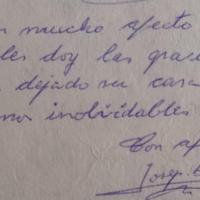 n mucho afecto
les doy las grac
dejado su casa
nos inolvidables
Con af
Josep